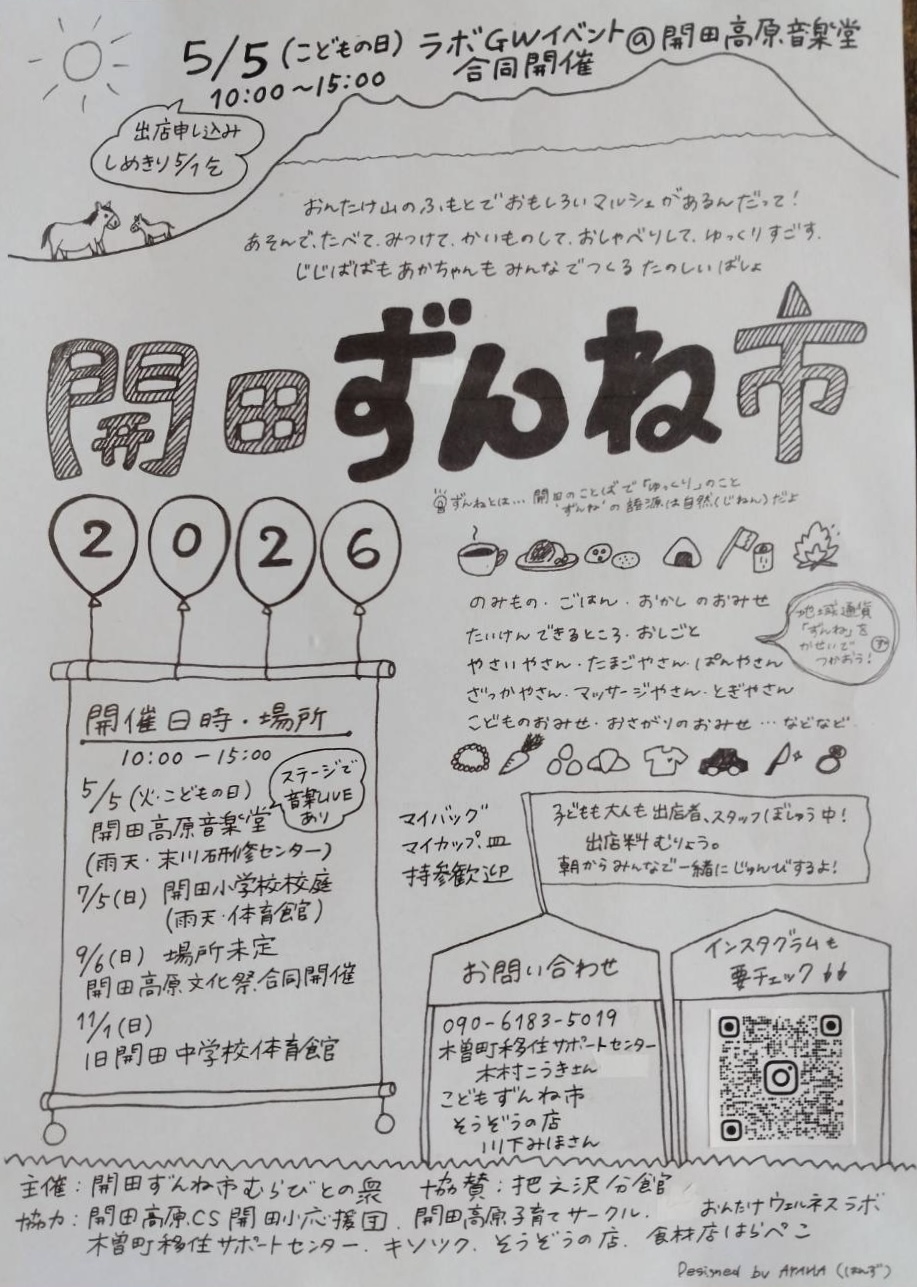 5/5(こどもの日) ラボGWイベント@開田高原音楽堂
10:00～15:00 合同開催
出店申し込み
しめきり5/1迄
おんたけ山のふもとでおもしろいマルシェがあるんだって!
あそんで、たべて、みつけて、かいものして、おしゃべりして、ゆっくりすごす.
じじばばもあかちゃんもみんなでつくるたのしいばしょ
開田ずんね市
ずんねとは… 開田のことばで「ゆっくり」のこと
"ずんね"の語源は自然(じねん)だよ
2026
のみもの・ごはん・おかしのおみせ
たいけんできるところ・おしごと
やさいやさん・たまごやさん・ぱんやさん
ざっかやさん・マッサージやさん・とぎやさん
こどものおみせ・おさがりのおみせ…などなど
地域通貨
「ずんね」を
かせいで
つかおう!
開催日時・場所
10:00―15:00
5/5(火・こどもの日)
開田高原音楽堂
(雨天・末川研修センター)
ステージで
音楽LIVE
あり
7/5(日) 開田小学校校庭
(雨天・体育館)
9/6(日) 場所未定
開田高原文化祭合同開催
11/1(日)
旧開田中学校体育館
マイバッグ
マイカップ.皿
持参歓迎
子どもも大人も出店者、スタッフぼしゅう中!
出店料むりょう。
朝からみんなで一緒にじゅんびするよ!
お問い合わせ
090-6183-5019
木曽町移住サポートセンター
木村こうきさん
こどもずんね市
そうぞうの店
川下みほさん
インスタグラムも
要チェック
主催:開田ずんね市むらびとの衆 協賛:把之沢分館
協力:開田高原CS 開田小応援団. 開田高原子育てサークル. おんたけウェルネスラボ
木曽町移住サポートセンター. キソツク. そうぞうの店. 食材店はらぺこ
Designed by